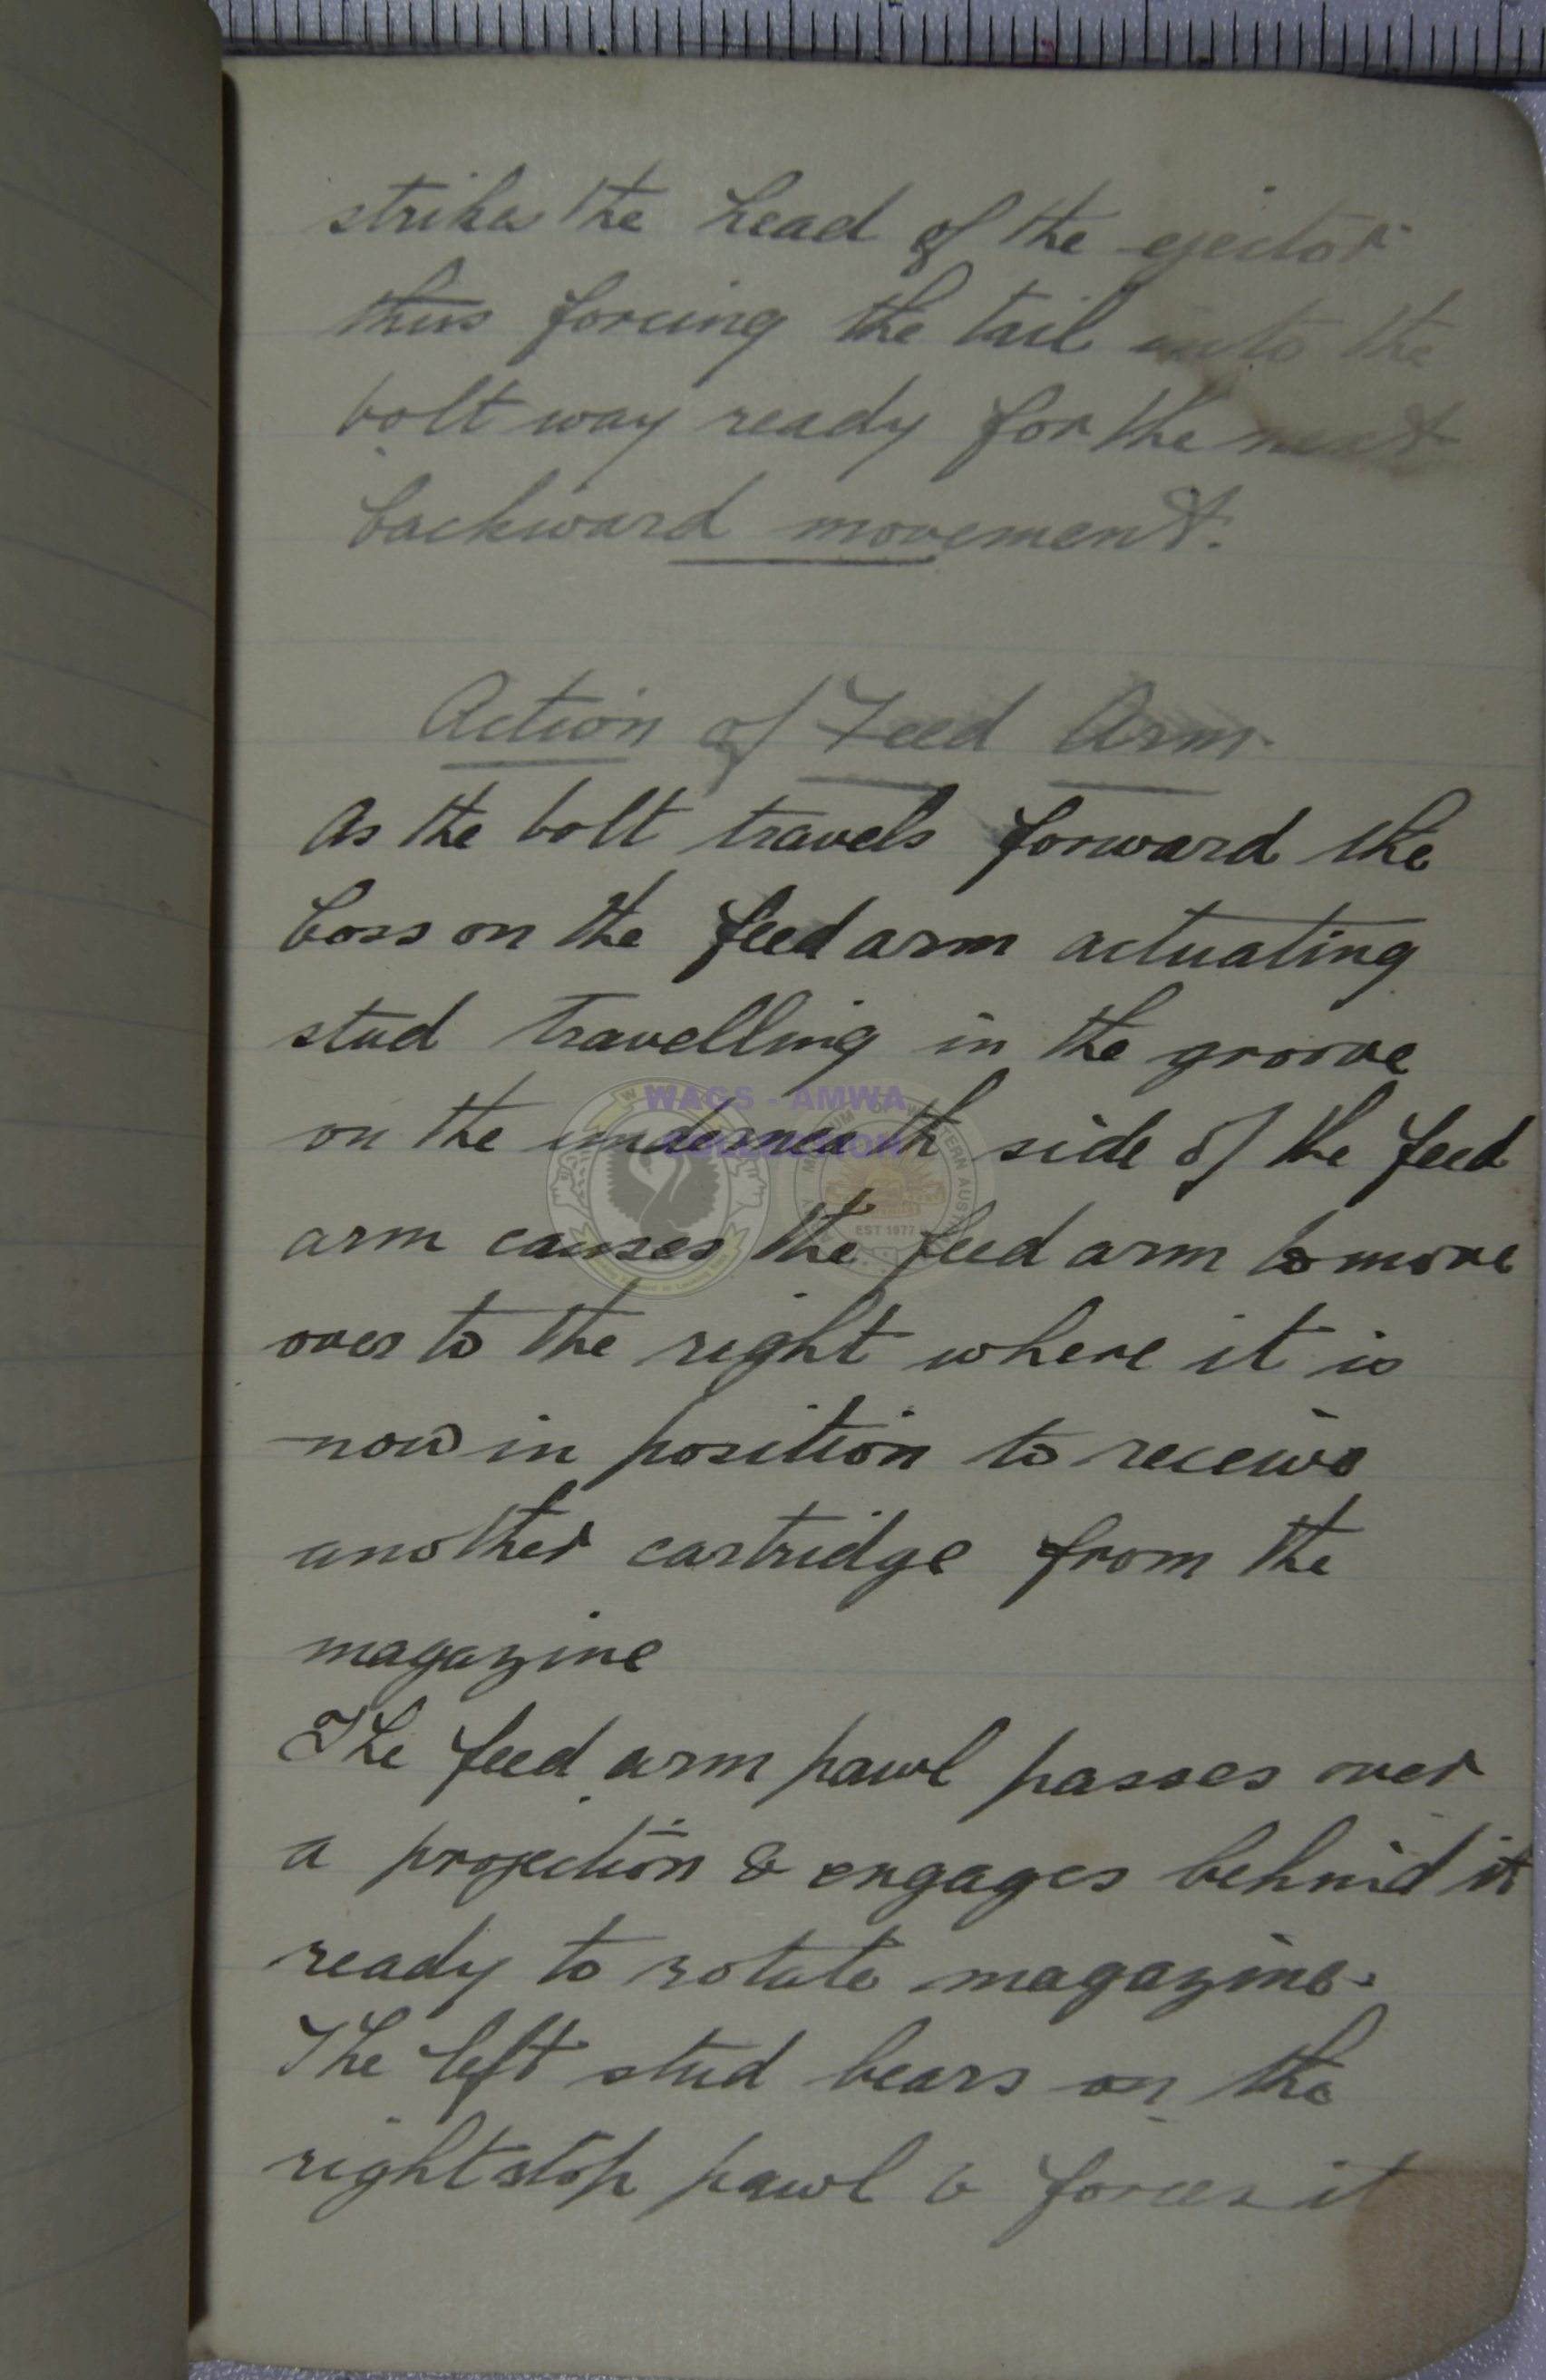 strikes the head of the ejector
thus forcing the tail into the
bolt way ready for the next
backward movement.
Action of Feed Arm
As the bolt travels forward the
boss on the feed arm actuating
stud travelling in the groove
WAGS - AMWA
COLLECTION
on the underneath side of the feed
EST 1977
arm causes the feed arm to move
over to the right where it is
now in position to receive
another cartridge from the
magazine
The feed arm pawl passes over
a projection & engages behind it
ready to rotate magazine.
The left stud bears on the
right stop pawl & forces it